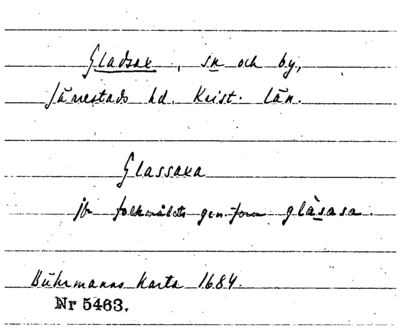 Gladsax, sn och by,
Järrestads hd. Krist. län.
Glassaxa
jfr folkmålets gen.form glàsasa.
Buhrmanns karta 1684.
Nr 5463.